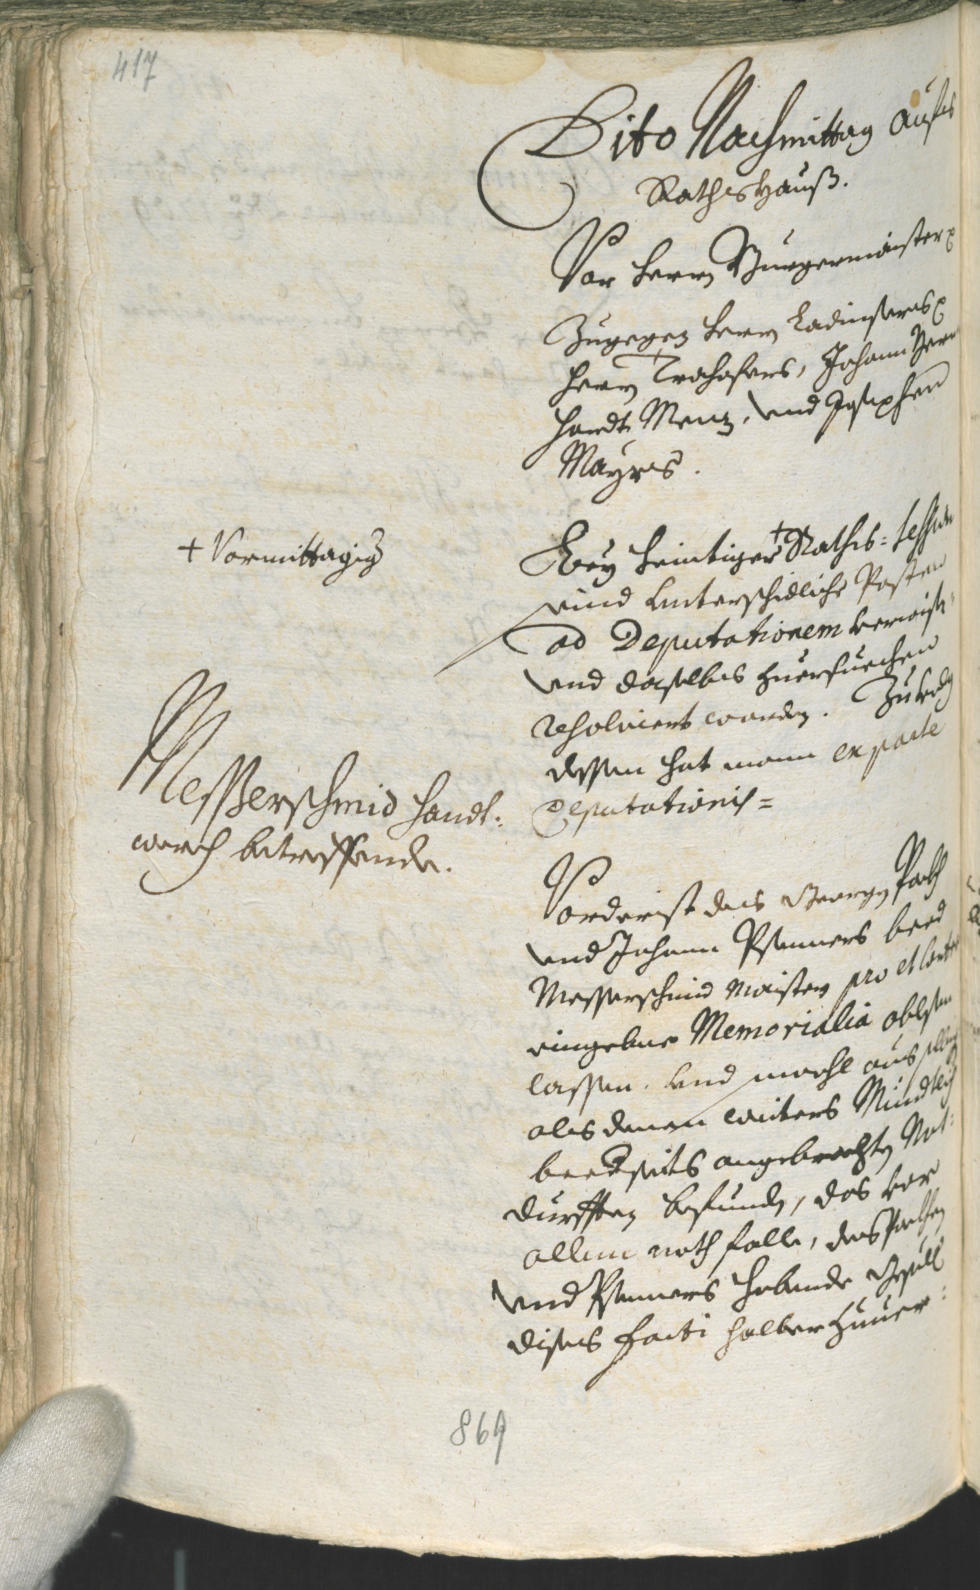 417
Dito Nachmittag aufm
Rathshauß.
Vor herrn Burgermaister
Zugegen herrn Ladinsers
herrn Trochsers, Johann Bern
hardt Menz, und Josephen
Mayrs.
+ Vormittagig
Bey heintiger + Raths= session
sind unterschidliche Posten
ad Deputationem verwisn
und daselbs zuersuechen
resolviert worden. Zufolg
dessen hat mann ex parte
Deputationis=
Messerschmid handt=
werch betreffende.
Vorderist des Georgen
und Johann Pfenners beed
Messerschmid Maister pro et Contra
eingebne Memorialia ablesen
lassen. und wohl aus selben
als denen weiters Mündtlich
beedseits angebrachten Not=
durfften befunden, das vor
allem noth falle, des
und Pfenners habende Gesell
dises facti halber zuver=
869